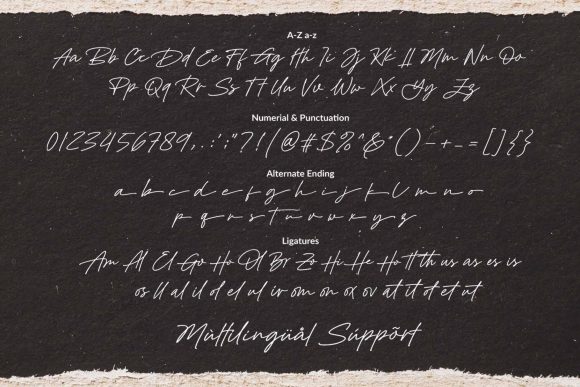 A-Z a-z
Aa Bb Cc Dd Ee Ff Gg Hh Ii Jj Kk Ll Mm Nn Oo
Pp Qq Rr Ss Tt Uu Vv Ww Xx Yy Zz
Numerial & Punctuation
0123456789,.:';"?!(@#$%^&*()-+-=[]{}
Alternate Ending
a b c d e f g h i j k l m n o
p q r s t u v w x y z
Ligatures
Am Al El Go Ho Ol Br Zo Hi He Ho tt th us as es is
os ll al il ol el ul ir om on ox ov at it ot et ut
Mùltilingüål Súppõrt